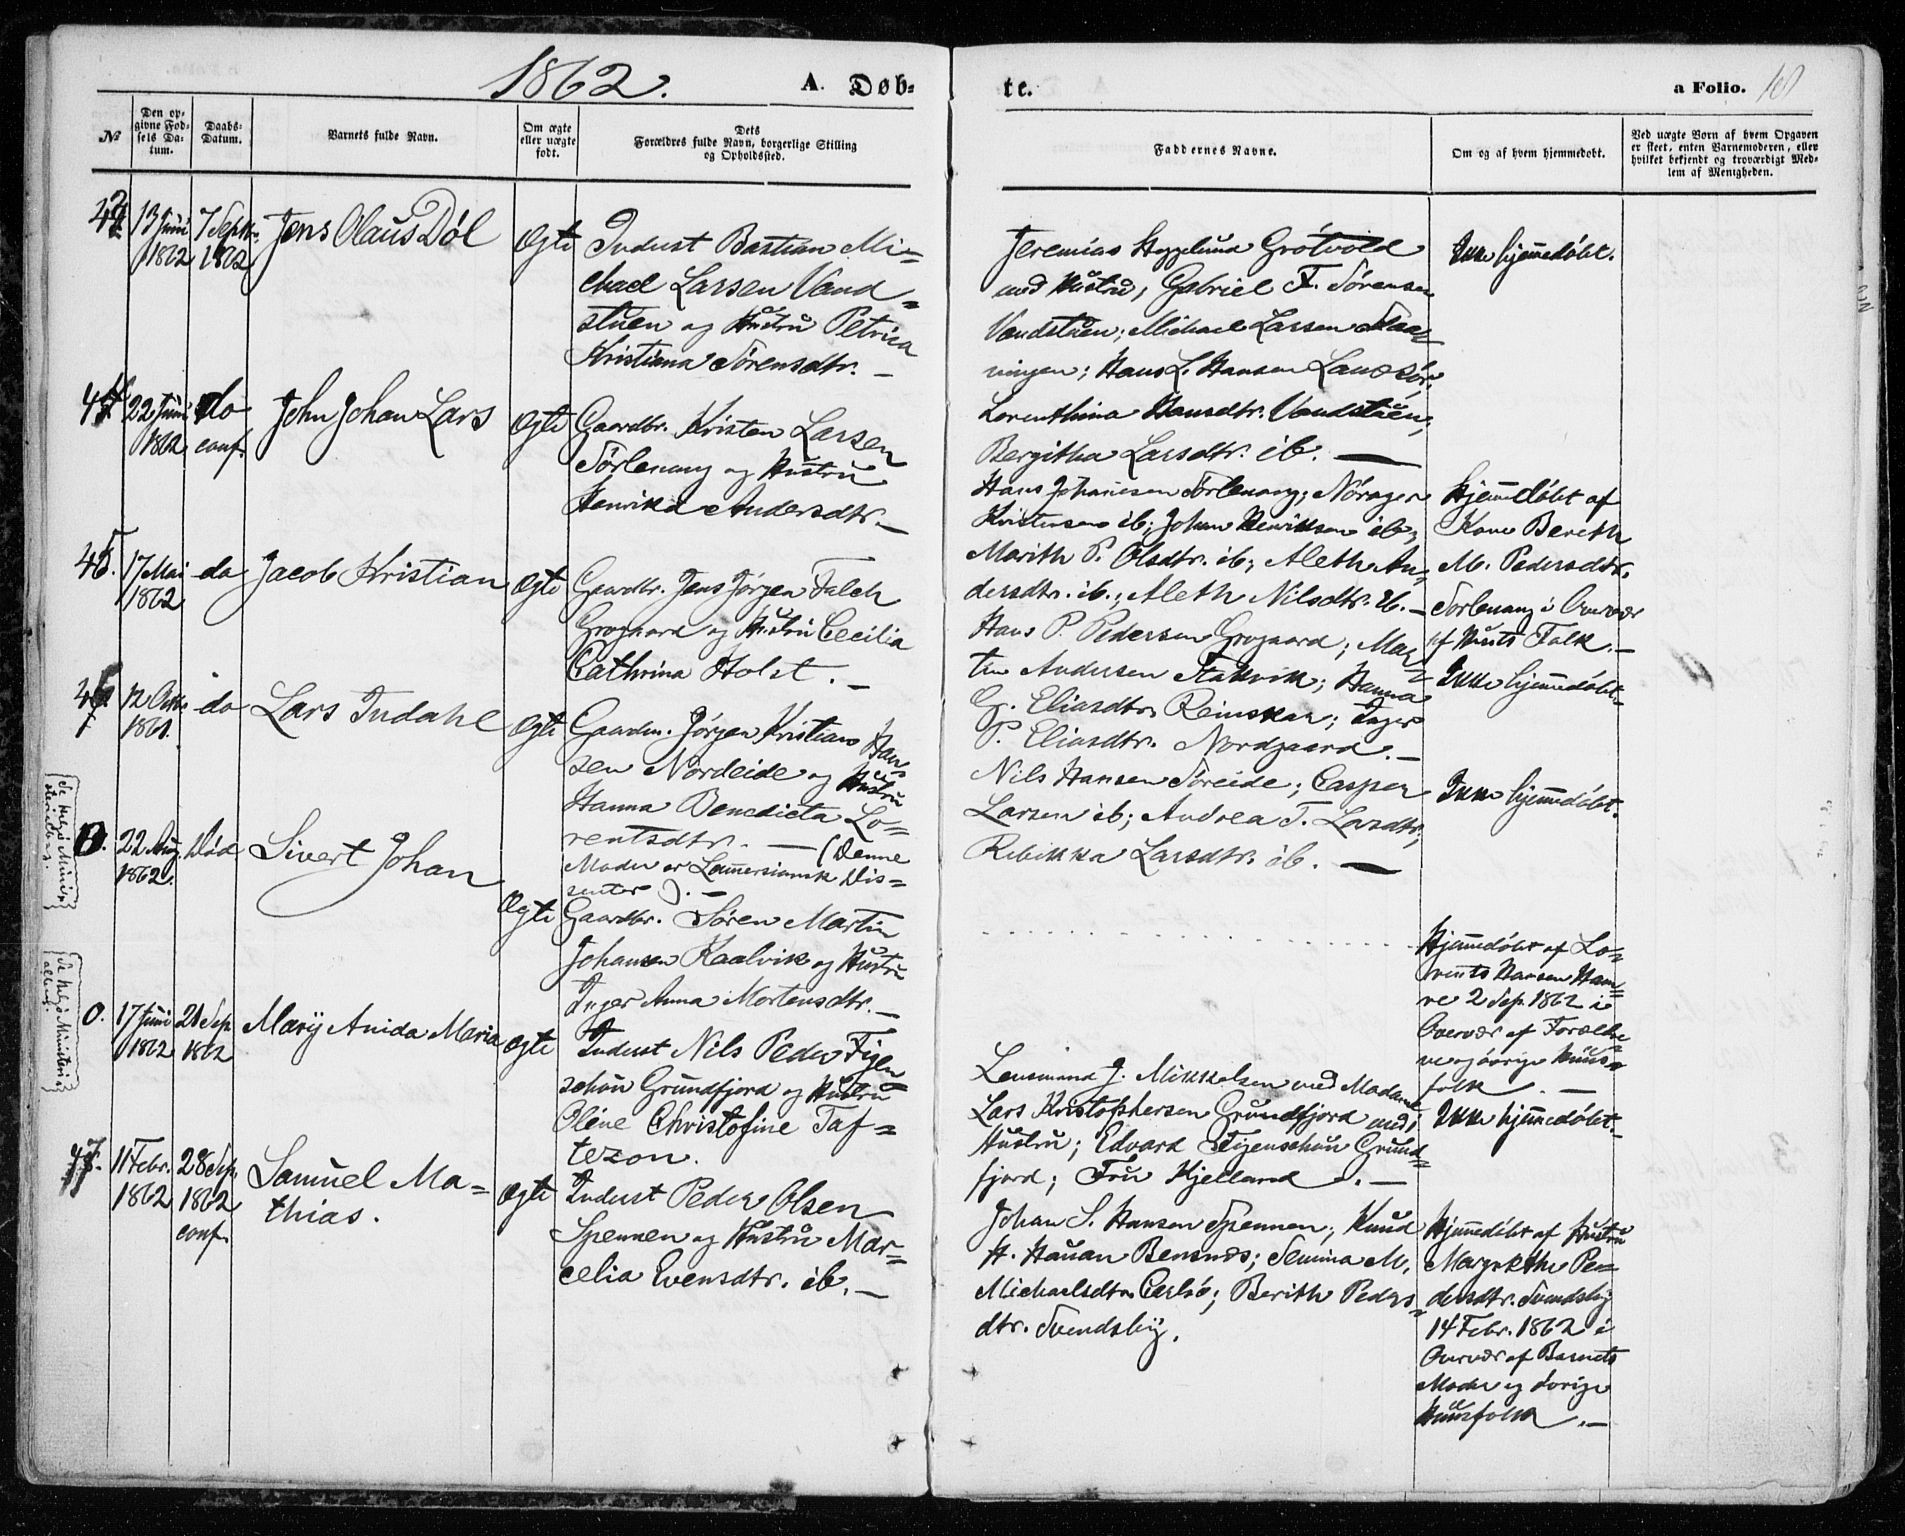 1862.
A. Døb-
te.
a Folio. 10
№
Den op-
givne Fød-
sels Da-
tum.
Daabs-
Datum.
Barnets fulde Navn.
Om ægte
eller uægte
født.
Dets
Forældres fulde Navn, borgerlige Stilling
og Opholdssted.
Faddernes Navne.
Om og af hvem hjemmedøbt.
Ved uægte Børn af hvem Opgaven
er skeet, enten Barnemoderen, eller
hvilket bekjendt og troværdigt Med-
lem af Menigheden.
13 Juni
1862
7 Septbr.
1862
Jens Olaus Døl
Ægte
Indust Bastian Mi-
chael Larsen Vand-
stuen og Hustru Petrica
Kristiana Sørensdtr. —
Jeremias Heggelund Grøtvold
med Hustru; Gabriel F. Sørensen
Vandstuen; Michael Larsen
ningen; Hans L. Hansen
Lorenthina Hansdtr. Vandstuen;
Bergitha Larsdtr. ib. —
Ikke hjemmedøbt.
44
22 Juni
1862
do
conf.
John Johan Lars
Ægte
Gaardbr. Kristen Larsen
Sørlenang og Hustru
Henrika Andersdtr. —
Hans Johannesen Sørlenang; Nørager
Kristensen ib; Johan Henriksen ib;
Marith P. Olsdtr. ib; Aleth An-
dersdtr. ib.; Aleth Nilsdtr. ib. —
Hjemmedøbt af
Kone Bereth
M. Pedersdtr.
Sørlenang i Overvær
af Huuts Folk. —
45.
17 Mai
1862
do
Jacob Kristian
Ægte
Gaardbr. Jens Jørgen Falch
Grogaard og Hustru Cecilia
Cathrina Holst. —
Hans P. Pedersen Grogaard; Mar-
tin Andersen Stakvik; Hanna
G. Eliasdtr. Reinskar; Inger
P. Eliasdtr. Nordgaard. —
Ikke hjemmedøbt.
46.
12 Oktb.
1861.
do
Lars Indahl
Ægte
Gaardm. Jørgen Kristian Han-
sen Nordeide og Hustru
Hanna Benedicta Lo-
rentsdtr. — (Denne
Moder er Lammersiansk Dis-
senter). —
Nils Hansen Søreide; Casper
Larsen ib; Andrea T. Larsdtr.;
Rebikka Larsdtr. ib. —
Ikke hjemmedøbt.
0.
22 Aug.
1862.
Død
Sivert Johan
Ægte
Gaardbr. Søren Martin
Johansen Kaalvik og Hustru
Inger Anna Mortensdtr. —
Hjemmedøbt af Lo-
rents Hansen Ham-
re 2 Sep. 1862 i
Overvær af Foræld-
re og øvrige Huus-
folk. —
0.
17 Juni
1862
21 Sep
1862
Mary Anida Maria
Ægte
Indust Nils Peder Figen
schou Grundfjord og Hustru
Oline Christofine Taf-
tezon.
Lensmand J. Mikkelsen med Madame
Lars Kristophersen Grundfjord med
Hustru; Edvard Figenschou Grund-
fjord; Fru Kjelland. —
Ikke hjemmedøbt. —
47.
11 Febr.
1862
28 Sep.
1862
conf.
Samuel Ma-
thias.
Ægte
Indust Peder Olsen
Spennen og Hustru Mar-
celia Evensdtr. ib. —
Johan S. Hansen Spennen; Knud
H. Hauan Bensnes; Semina M.
Michaelsdtr. Carlsø; Berith Peders-
dtr. Svendsby.
Hjemmedøbt af Hustru
Margrethe Pe-
dersdtr. Svendsby
14 Febr. 1862 i
Overvær af Barnets
Moder og øvrige
Huusfolk. —